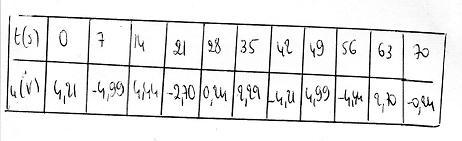 t(s) 0 7 14 21 28 35 42 49 56 63 70
u(V) 4,21 -4,99 4,44 -2,70 0,24 2,29 -4,21 4,99 -4,44 2,70 -0,24